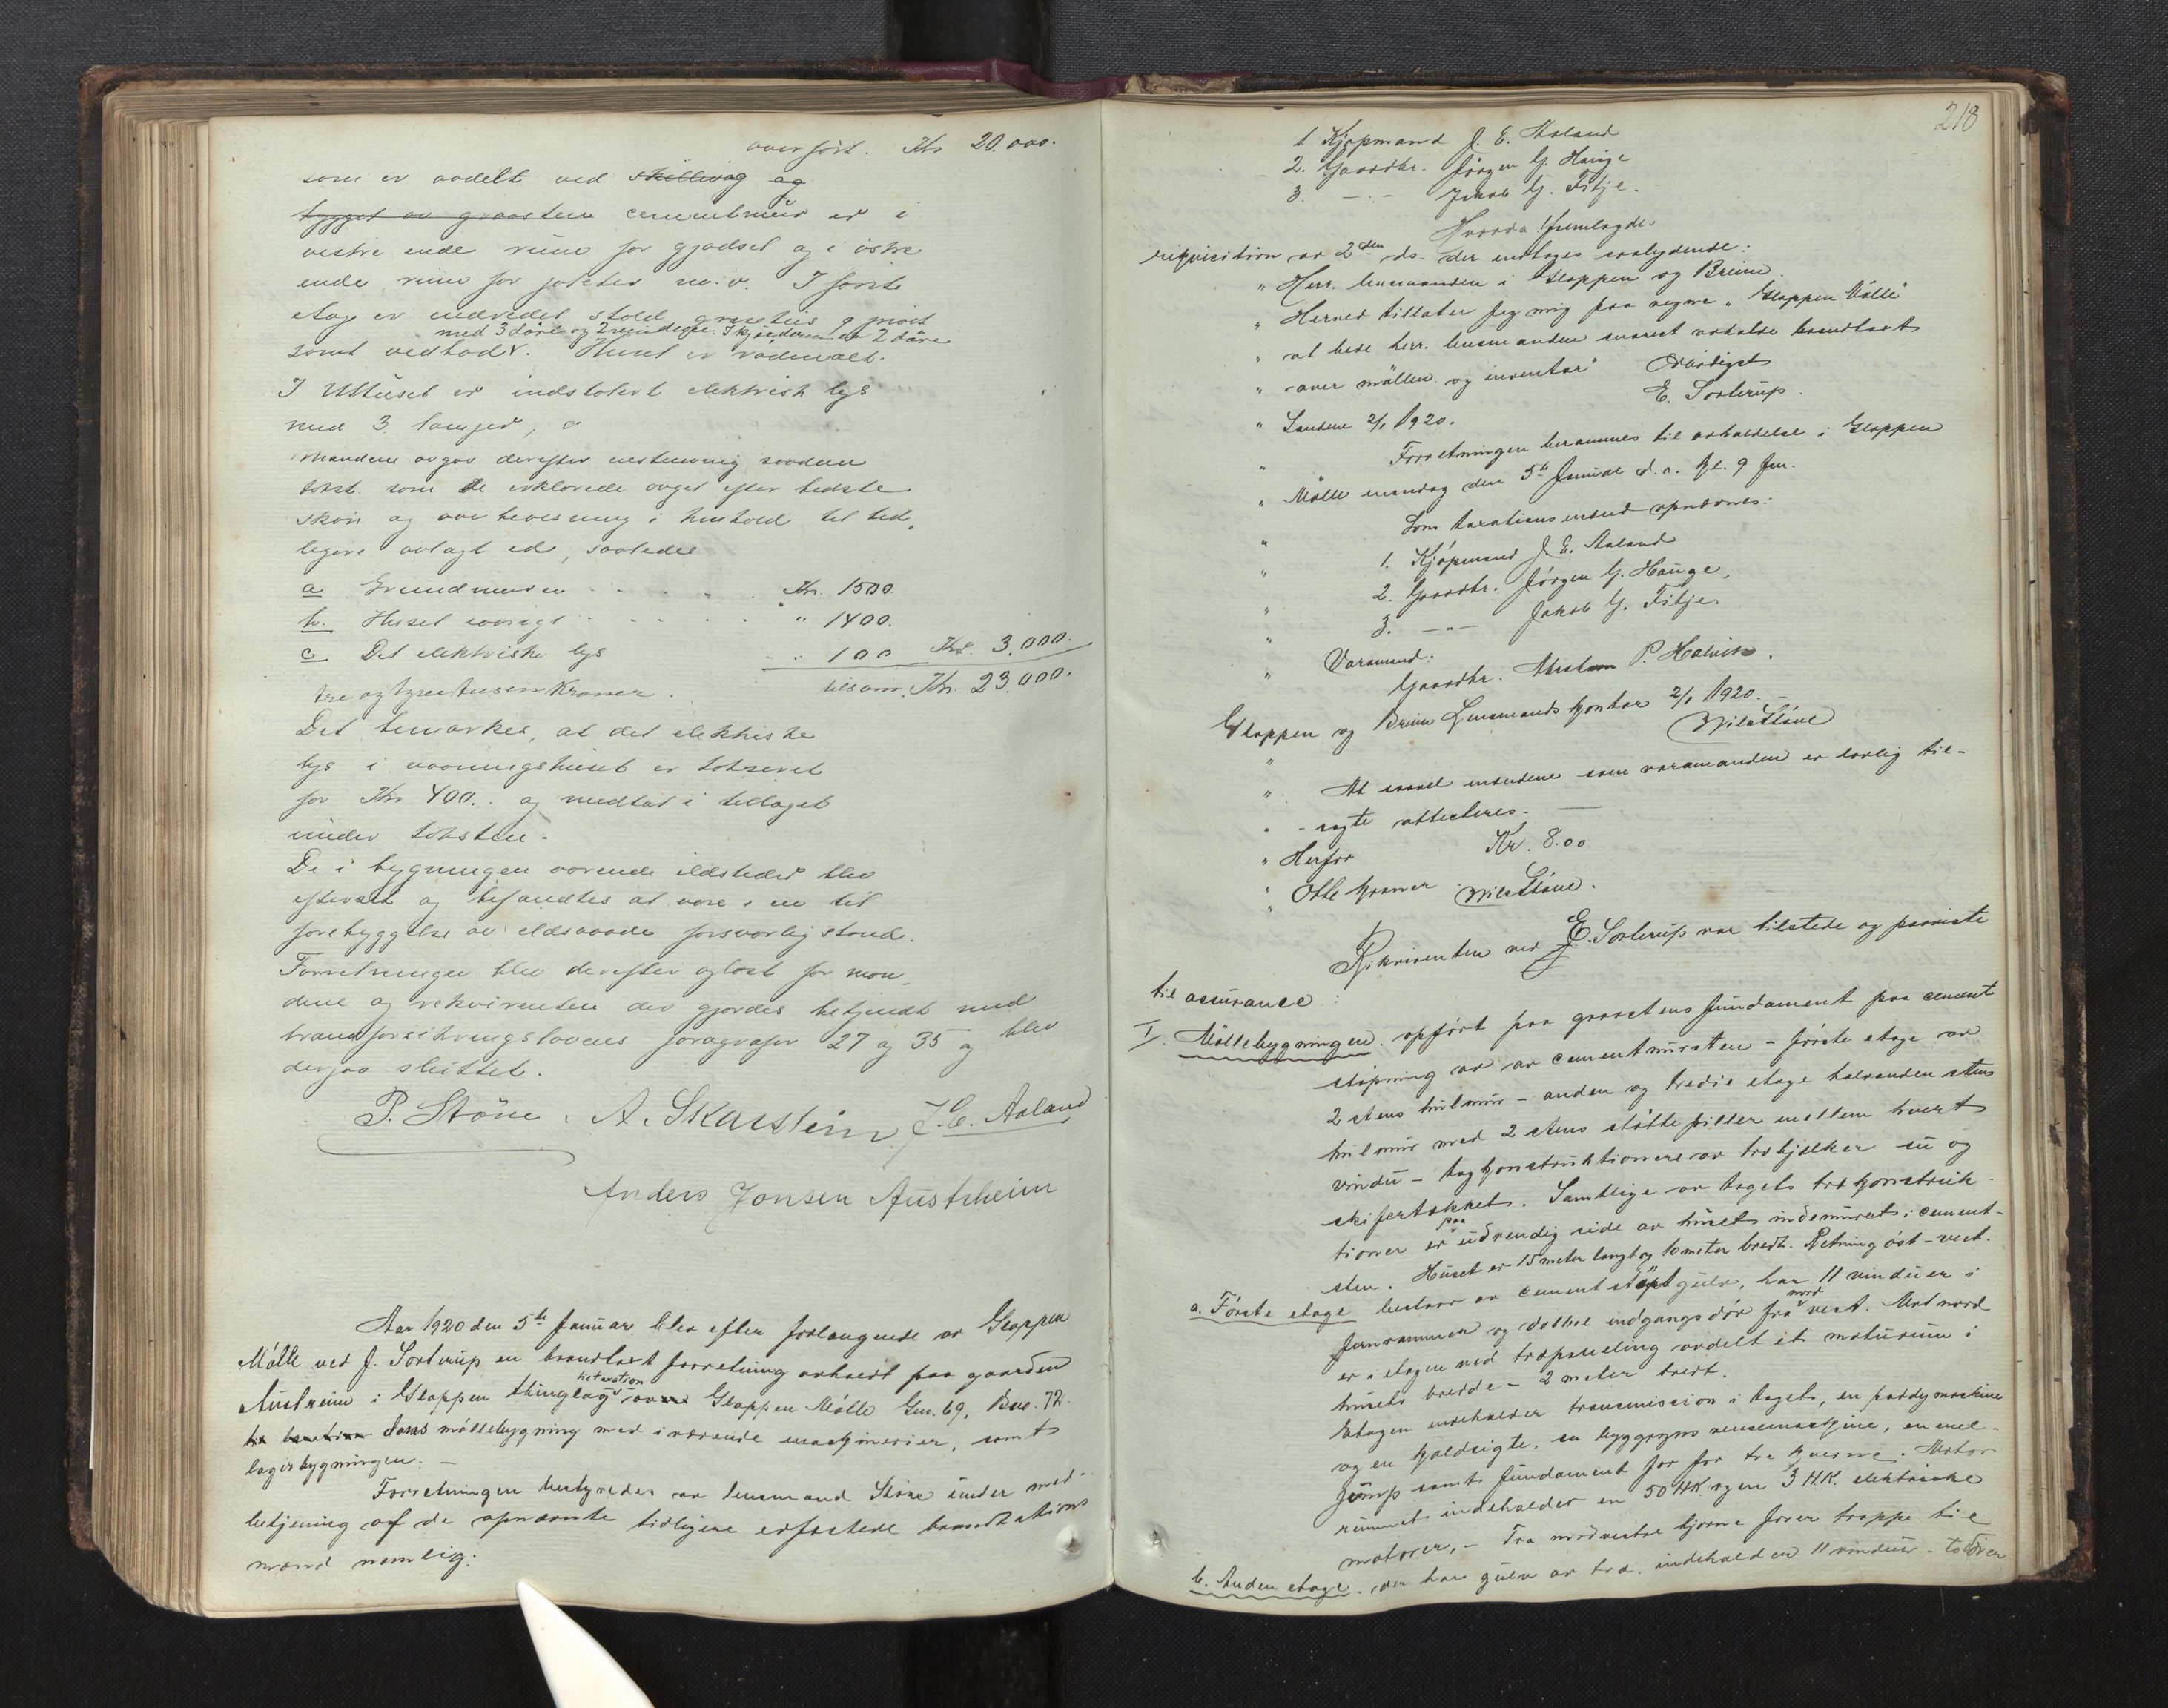 overført. Kr 20.000.
som er avdelt ved skillevæg og
bygget av graasten cementmur er i
vestre ende rum for gjødsel og i østre
ende rum for poteter m.v. I første
etage er indredet stald, grastus
med 3 døre og 2 vinduer. I kjælderen er 2 døre
samt vedbod. Huset er rødmalt.
I Uthuset er indstalert elektrisk lys
med 3 lamper,
Mændene avgav derefter enstemmig saadan
takst som de erklærede avgit efter bedste
skjøn og overbevisning i henhold til tid-
ligere avlagt ed, saaledes
a Grundmuren Kr. 1500.
b. Huset iøvrigt " 1400.
c Det elektriske lys " 100 Kr. 3.000.
tre og tyve tusen Kroner. tilsam. Kr. 23.000.
Det bemerkes, at det elektriske
lys i vaaningshuset er taksert
for Kr 400.. og medtat i tillæget
under taksten.
De i bygningen værende ildsteder blev
efterset og befandtes at være i en til
forebyggelse av ildsvaade forsvarlig stand.
Forretningen blev derefter oplæst for mæn-
dene og rekvirenten der gjordes bekjendt med
brandforsikringslovens paragrafer 27 og 35 og blev
derpaa sluttet.
P. Støve. A. Skarstein J. E. Aaland
Anders Jonsen Austrheim
Aar 1920 den 5te Januar blev efter forlangende av Gloppen
Mølle ved J. Sorterup en brandtakst forretning avholdt paa gaarden
Austreim i Gloppen thinglag til taxation over Gloppen Mølle Gno. 69, Bno. 72.
dens møllebygning med iværende maskinerier, samt
lagerbygningen. —
Forretningen bestyredes av lensmand Støve under med-
betjening af de opnævnte tidligere edfæstede brandtakstions
mænd nemlig:
218
1 Kjøpmand J. E. Aaland
2. Gaardbr. Jørgen G. Hauge
3. —"— Jakob G. Fitje.
Hvorda fremlagdes
requisition av 2den ds. der indtages saalydende:
" Herr. lensmanden i Gloppen og Breim.
" Herved tillater jeg mig paa vegne " Gloppen Mølle"
" at bede herr. lensmanden snarest avholde brandtakst
" over møllen og inventar" Ærbødigst
E. Sorterup.
" Sandene 2/1 1920.
" Forretningen berammes til avholdelse i Gloppen
" Mølle mandag den 5te Januar d.a. kl. 9 fm.
" Som taxationsmænd opnævnes:
" 1. Kjøpmand J. E. Aaland
" 2. Gaardbr. Jørgen G. Hauge,
" 3. —"— Jakob G. Fitje.
" Varamand:
Gaardbr. P. Holvik.
Gloppen og Breim Lensmandskontor 2/1 1920. —
" Nils Støve
" At saavel mændene som varamanden er lovlig til-
" - sagte attesteres. —
" Herfor Kr. 8.00
" Otte kroner Nils Støve.
Rekvirenten ved E. Sorterup var tilstede og paaviste
til assurance:
I. Møllebygningen. opført paa graastens fundament paa cement
støpning av av cementmursten - første etage av
2 stens hulmur - anden og tredie etage halvanden stens
hulmur med 2 stens støttepiller mellem hvert
vindu - tagkonstruktionerne av træbjælker su og
skifertækket. Samtlige av tagets trækonstruk-
tioner er paa utvendig side av huset indmuret i cement-
sten. Huset er 15 meter langt og 10 meter bredt. Retning øst - vest.
a. Første etage bestaar av cement støpt gulv, har 11 vinduer i
jernrammer og dobbel indgangsdør fra nord vest. Mot nord
er i etagen ved træpaneling avdelt et motorrum i
husets bredde - 2 meter bredt.
Etagen indeholder transmission i taget, en paddymaskine
og en koldsigte, en byggryns rensemaskine, en mel-
samt fundament for for tre kverne. Motor
rummet indeholder en 50 HK. og en 3 HK. elektriske
motorer, - Fra nordvestre hjørne fører trappe til
b. Anden etage. der har gulv av træ. indeholder 11 vinduer - to døre